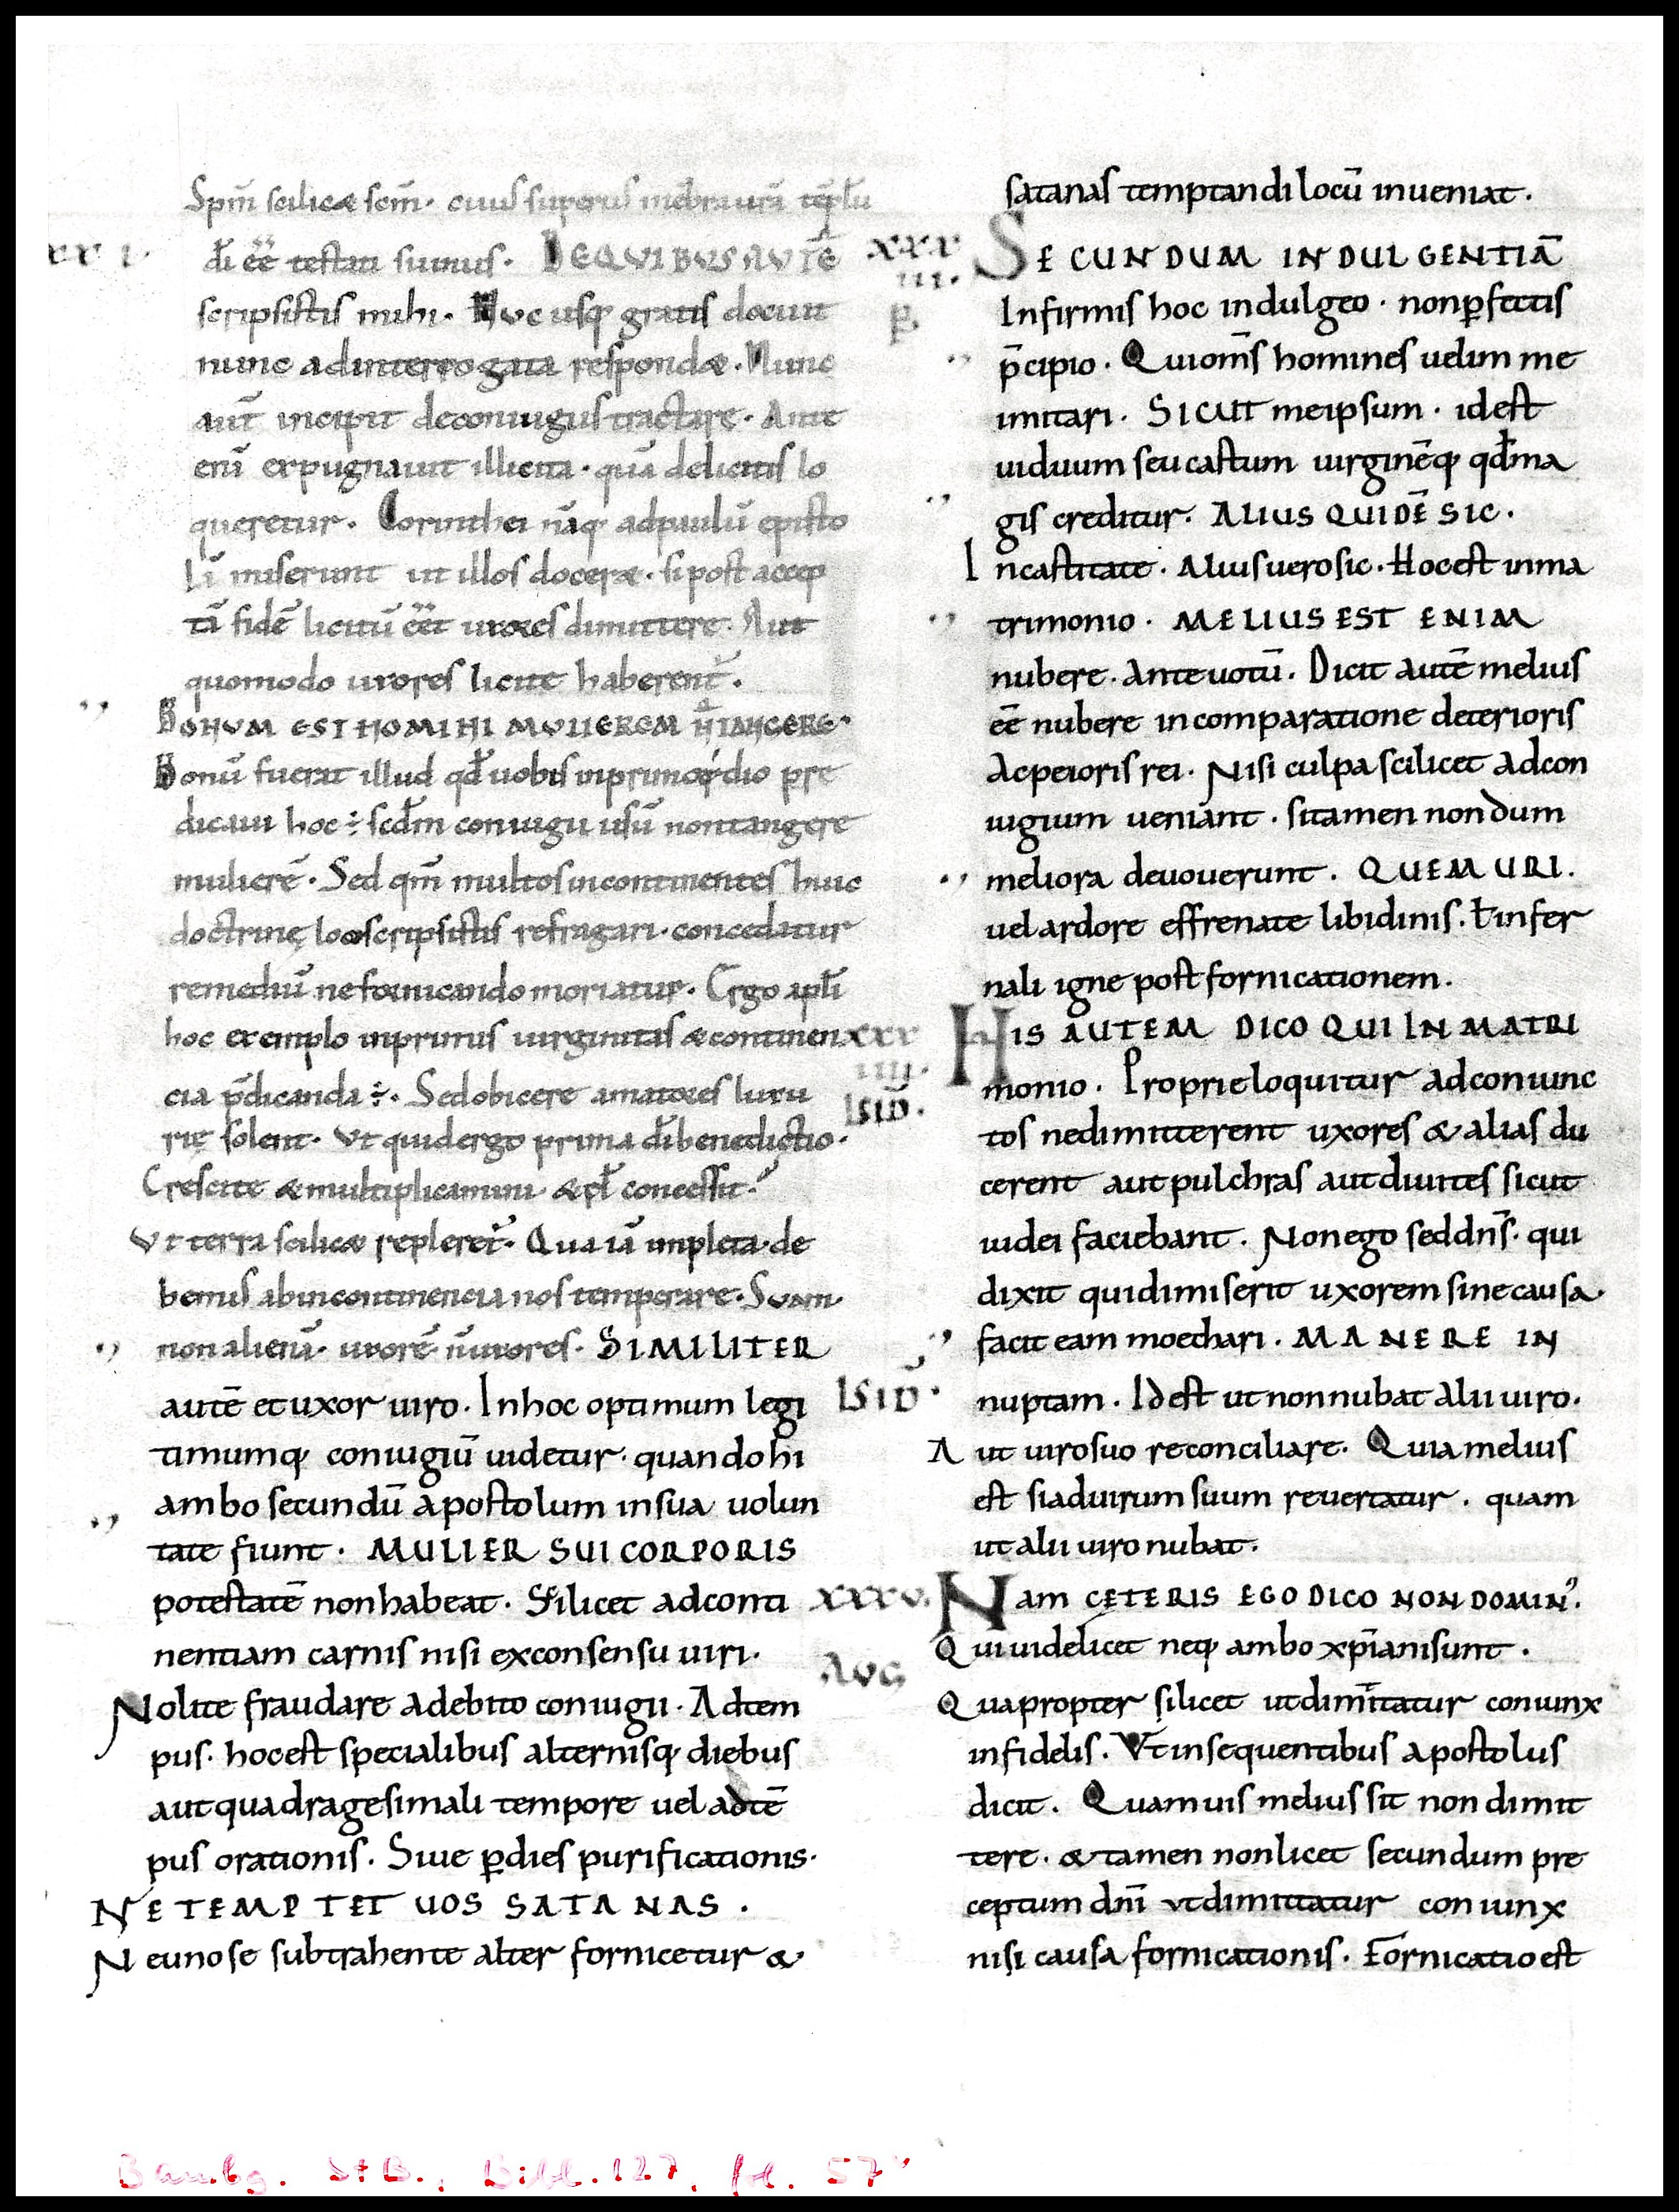 Spm̄ scilicæ scm̄· cuius superius mēbra urā tēplū
xx i.
dī ēē testati sumus· DE QVIBUS AVTĒ
scripsistis mihi· Huc usq; gratis docuit
nunc ad interrogata respondæ· Nunc
aut̄ incipit de coniugiis tractare· Ante
enī expugnauit illicita· quā de licitis lo
queretur· Corinthei nāq; ad paulū episto
lā miserunt ut illos doceræ· si post accep
tā fidē licitū ēet uxores dimittere· Aut
quomodo uxores licite haberent̄·
BONUM EST HOMINI MULIEREM N̄ TANGERE·
Bonū fuerat illud qđ uobis in primordio pre
dicaui hoc ÷ scđm coniugii usū non tangere
mulierē· Sed qm̄ multos incontinentes huic
doctrinę loco scripsistis refragari· concedatur
remediū ne fornicando moriatur· Ergo apłi
hoc exemplo inprimis uirginitas æ continen
cia p̄dicanda ÷· Sed obicere amatores luxu
rię solent· Vt quid ergo prima dī benedictio·
Crescite æ multiplicamini æ pł concessit·
Vt terra scilicæ repleret̄· Qua iā impleta· de
bemus ab incontinencia nos temperare· Suam·
non alienā· uxorē· n̄ uxores· SIMILITER
autē et uxor uiro· In hoc optimum legi
timumq; coniugiū uidetur· quando hi
ambo secundū apostolum in sua uolun
tate fiunt· MULIER SUI CORPORIS
potestatē non habeat· Scilicet ad conti
nentiam carnis nisi ex consensu uiri·
Nolite fraudare a debito coniugii· Ad tem
pus· hoc est specialibus alternisq; diebus
aut quadragesimali tempore uel ad tē
pus orationis· Siue p dies purificationis·
NE TEMPTET UOS SATANAS·
Ne uno se subtrahente alter fornicetur &
satanas temptandi locū inueniat·
xxx iii. p.
SECUNDUM INDULGENTIĀ
Infirmis hoc indulgeo· non pfectis
p̄cipio· Qui om̄s homines uelim me
imitari· SICUT me ipsum· id est
uiduum seu castum uirginēq; qđ ma
gis creditur· ALIUS QUIDĒ SIC·
In castitate· Alius uero sic· Hoc est in ma
trimonio· MELIUS EST ENIM
nubere· Ante uotū· Dicit autē melius
ēē nubere in comparatione deterioris
ac peioris rei· Nisi culpa scilicet ad con
iugium ueniant· si tamen nondum
meliora deuouerunt· QUEM URI·
uel ardore effrenate libidinis· ł infer
nali igne post fornicationem·
xxx iiii. ISID·
HIS AUTEM DICO QUI IN MATRI
monio· Proprie loquitur ad coniunc
tos ne dimitterent uxores & alias du
cerent aut pulchras aut diuites sicut
iudei faciebant· Non ego sed dn̄s· qui
dixit qui dimiserit uxorem sine causa·
facit eam moechari· MANERE IN
ISID·
nuptam· Id est ut non nubat alii uiro·
Aut uiro suo reconciliare· Quia melius
est si ad uirum suum reuertatur· quam
ut alii uiro nubat·
xxxv.
NAM CETERIS EGO DICO NON DOMIN'·
AUG
Qui uidelicet neq; ambo xp̄iani sunt·
Quapropter silicet ut dimittatur coniunx
infidelis· Vt in sequentibus apostolus
dicit· Quamuis melius sit non dimit
tere· & tamen non licet secundum pre
ceptum dnī ut dimittatur coniunx
nisi causa fornicationis· Fornicatio est
Bambg. StB., Bibl. 127, fol. 57v